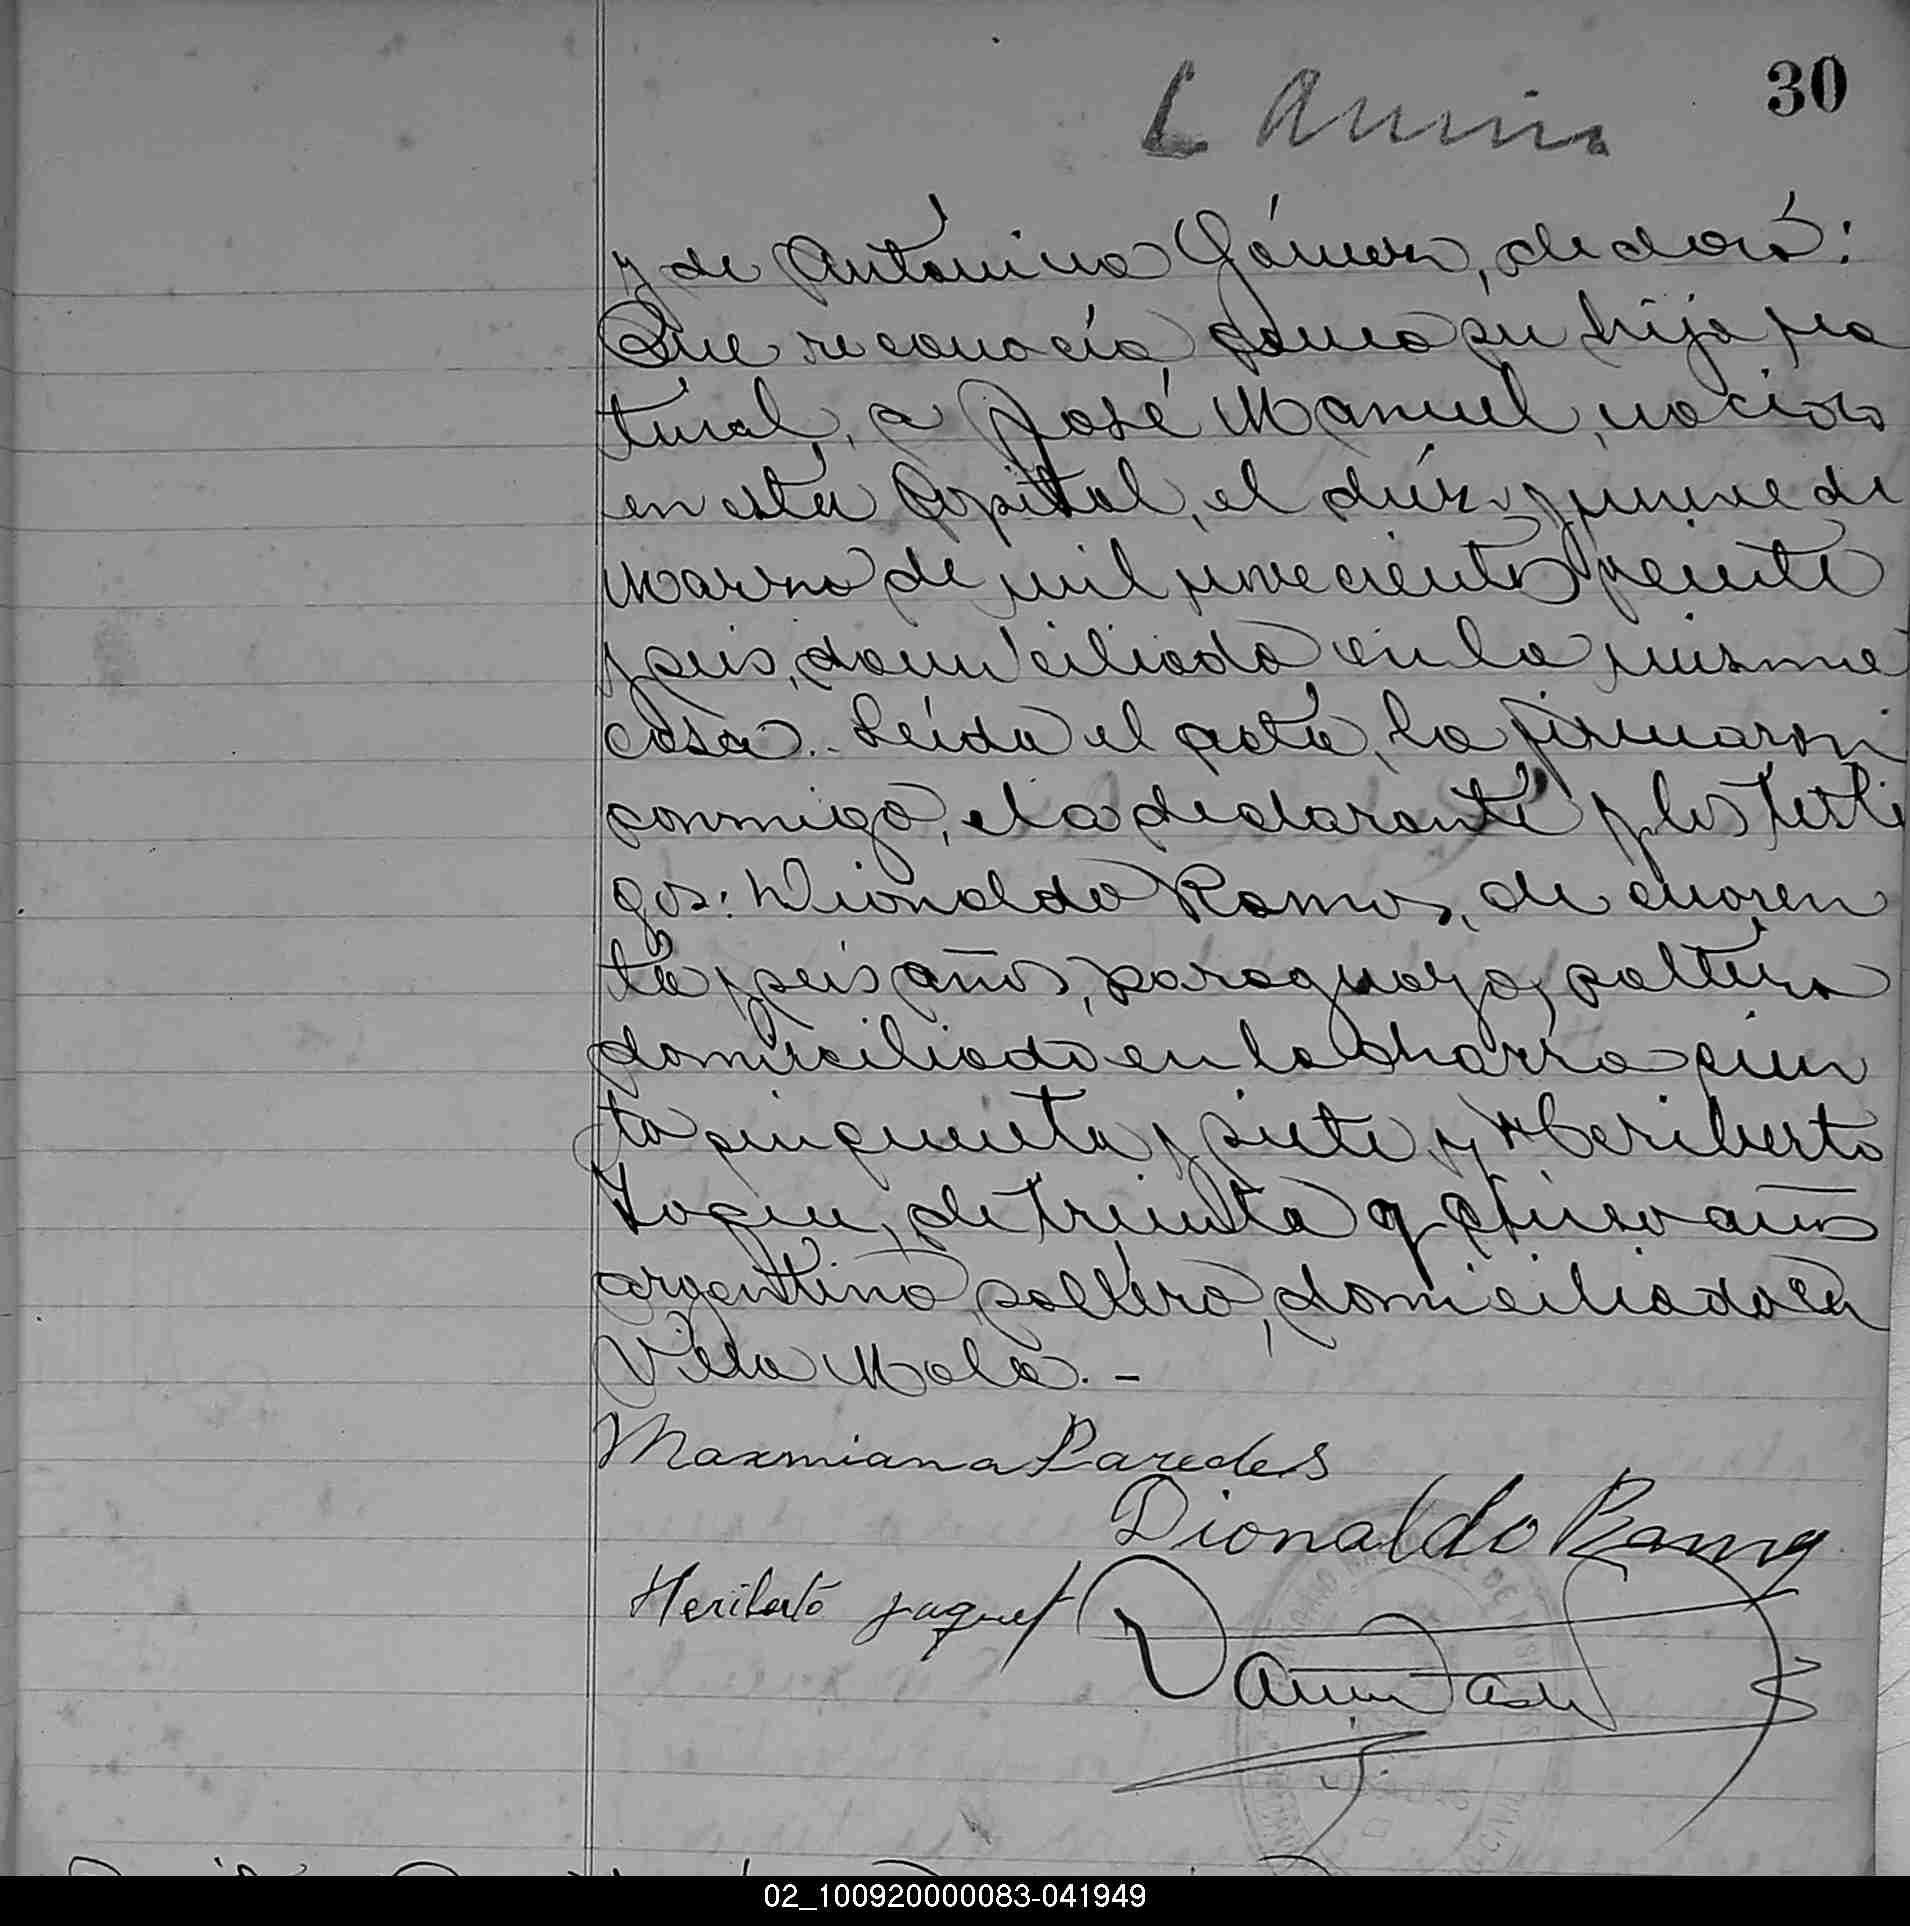 30
y de Antonina Gómez, declaró:
Que reconocía como su hijo na
tural, a José Manuel, nacido
en esta Capital, el diez y nueve de
Marzo de mil novecientos veinte
y seis, domiciliado en la misma
casa. Leída el acta, la firmaron
conmigo, el a declarante y los testi
gos: Dionaldo Ramos, de cuaren
ta y seis años, paraguayo, soltero
domiciliado en la chacra cien
to cincuenta y siete y Heriberto
de treinta y cinco años
argentino, soltero, domiciliado en
Villa Mola. -
Maxmiana Paredes
Dionaldo Ramos
Heriberto Jaquet
02_100920000083-041949